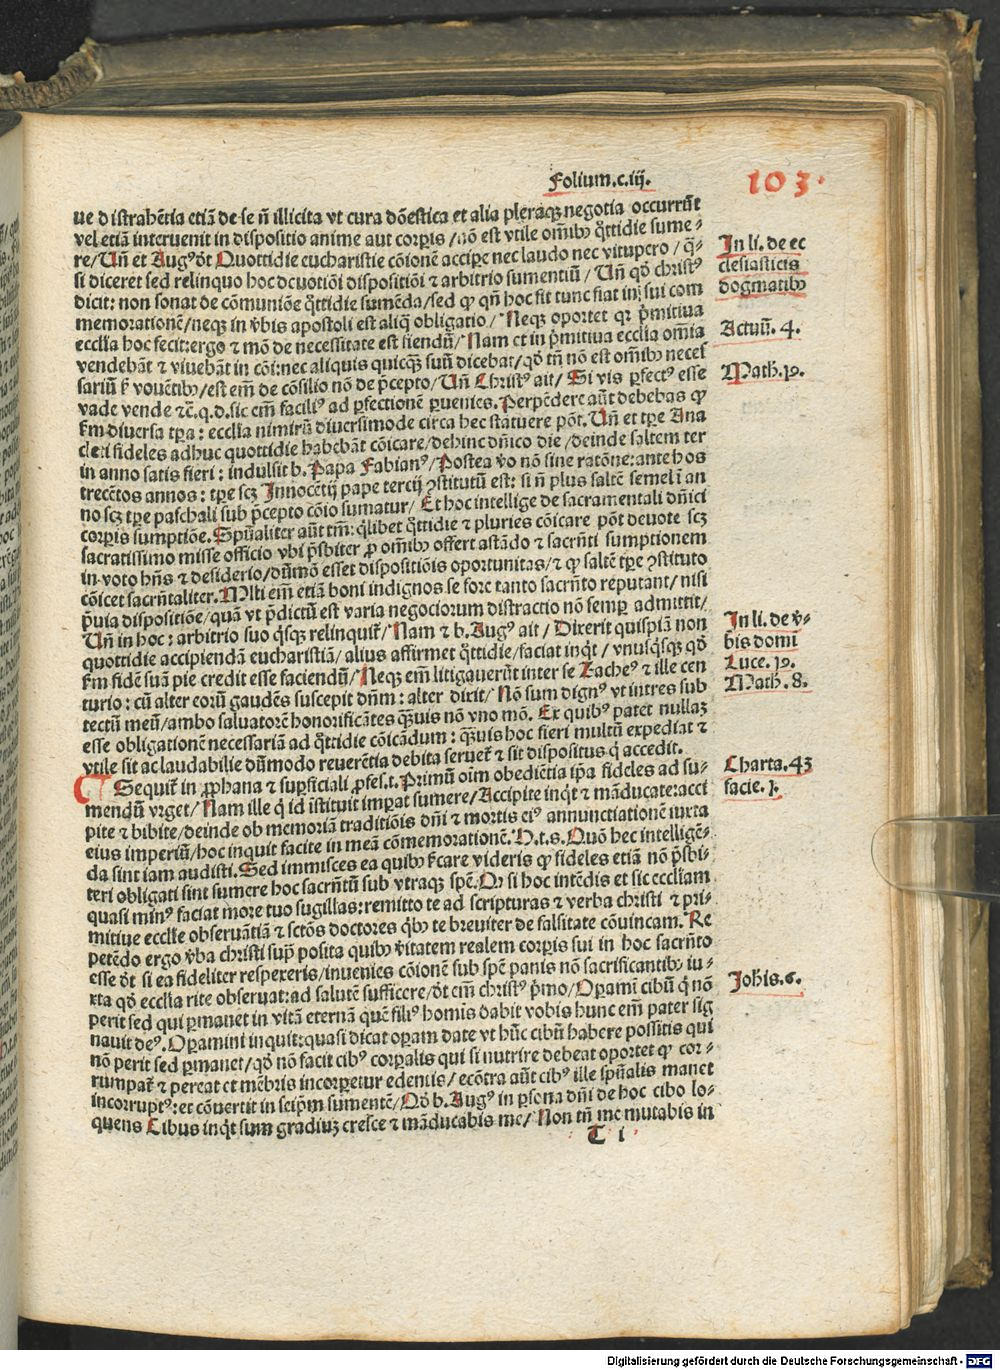 Folium.c.iij.
103.
ue distrahētia etiā de se nō illicita vt cura dōestica et alia pleraqꝫ negotia occurrūt
vel etiā interuenit in dispositio anime aut corpꝑis / nō est vtile om̄ibꝫ q̄ttidie sume⸗
re / Uñ et Augꝰ dt̄ Quottidie eucharistie cōionē accipe nec laudo nec vitupero / q̄⸗
si diceret sed relinquo hoc deuotiōi dispositiōi ⁊ arbitrio sumentiū / Uñ qd̓ christꝰ
dicit: non sonat de cōmuniōe q̄ttidie sumēda / sed ꝙ qn̄ hoc fit tunc fiat in sui com
memorationē / neqꝫ in v̓bis apostoli est aliq̄ obligatio / Neqꝫ oportet qꝛ p̄mitiua
eccl̓ia hoc fecit: ergo ⁊ mō de necessitate est fiendū / Nam et in p̄mitiua eccl̓ia om̄ia
vendebāt ⁊ viuebāt in cōi: nec aliquis quicqꝫ suū dicebat / qd̓ tn̄ nō est om̄ibꝫ necess
sariū nisi vouētibꝫ / est em̄ de cōsilio nō de p̄cepto / Uñ Christꝰ ait / Si vis ꝑfectꝰ esse
vade vende ⁊c̄.q.d.sic em̄ faciliꝰ ad ꝑfectionē ꝑuenies. Perpēdere aūt debebas ꝙ
s̓m diuersa tp̄a: eccl̓ia nimirū diuersimode circa hec statuere pōt. Uñ et tp̄e Ana
cleti fideles adhuc quottidie habebāt cōicare / dehinc dn̄ico die / deinde saltem ter
in anno satis fieri: indulsit b. Papa Fabianꝰ / Postea v̓o nō sine ratōne: ante hos
trecētos annos: tp̄e scꝫ Innocētij pape tercij ꝯstitutū est: si nō plus saltē semel ī an
no scꝫ tp̄e paschali sub p̄cepto cōio sumatur / Et hoc intellige de sacramentali dn̄ici
corpꝑis sumptiōe. Spūaliter aūt tm̄: q̄libet q̄ttidie ⁊ pluries cōicare pōt deuote scꝫ
sacratissimo misse officio vbi p̄sbiter ꝓ om̄ibꝫ offert astādo ⁊ sacrn̄ti sumptionem
in voto hn̄s ⁊ desiderio / dūmō esset dispositiōis oportunitas / ⁊ ꝙ saltē tp̄e ꝯstituto
cōicet sacrn̄taliter. Mlti em̄ etiā boni indignos se fore tanto sacrn̄to reputant / nisi
p̄uia dispositiōe / quā vt p̄dictū est varia negociorum distractio nō semꝑ admittit /
Uñ in hoc: arbitrio suo q̄sqꝫ relinquit̄ / Nam ⁊ b. Augꝰ ait / Dixerit quispiā non
quottidie accipiendā eucharistiā / alius affirmet q̄ttidie / faciat inq̄t / vnusq̄sqꝫ qd̓
s̓m fidē suā pie credit esse faciendū / Neqꝫ em̄ litigauerūt inter se Zacheꝰ ⁊ ille cen
turio: cū alter eorū gaudēs suscepit dn̄m: alter dixit / Nō sum dignꝰ vt intres sub
tectū meū / ambo saluatorē honorificātes q̄ꝫuis nō vno mō. Ex quibꝰ patet nullaꝫ
esse obligationē necessariā ad q̄ttidie cōicādum: q̄ꝫuis hoc fieri multū expediat ⁊
vtile sit ac laudabilie dūmodo reuerētia debita seruet̄ ⁊ sit dispositus q̄ accedit.
¶ Sequit̄ in ꝓphana ⁊ suꝑficiali ꝓfes.t. Primū oīm obediētia ip̄a fideles ad su⸗
mendū vrget / Nam ille q̄ id īstituit imꝑat sumere / Accipite inq̄t ⁊ māducate: acci
pite ⁊ bibite / deinde ob memoriā traditiōis dn̄i ⁊ mortis eiꝰ annunctiationē iuxta
eius imperiū / hoc inquit facite in meā cōmemorationē. H.t.s. Quō hec intelligē⸗
da sint iam audisti. Sed immisces ea quibꝫ s̓care videris ꝙ fideles etiā nō p̄sbi⸗
teri obligati sint sumere hoc sacrn̄tū sub vtraqꝫ spē. Qꝫ si hoc intēdis et sic eccl̓iam
quasi minꝰ faciat more tuo sugillas: remitto te ad scripturas ⁊ verba christi ⁊ pri⸗
mitiue eccl̓ie obseruātiā ⁊ sctōs doctores q̄bꝫ te breuiter de falsitate cōuincam. Re
petēdo ergo v̓ba christi suꝑ posita quibꝫ v̓itatem realem corꝑis sui in hoc sacrn̄to
esse dt̄ si ea fideliter respexeris / inuenies cōionē sub spē panis nō sacrificantibꝫ iu⸗
xta qd̓ eccl̓ia rite obseruat: ad salutē sufficere / dt̄ em̄ christꝰ p̄mo / Opamī cibū q̄ nō
perit sed qui ꝑmanet in vitā eternā quē filiꝰ homīs dabit vobis hunc em̄ pater sig
nauit deꝰ. Opamini inquit: quasi dicat opam date vt hūc cibū habere possitis qui
nō perit sed ꝑmanet / qd̓ nō facit cibꝰ corꝑalis qui si nutrire debeat oportet ꝙ cor⸗
rumpat̄ ⁊ pereat et mēbris incorꝑetur edentis / ecōtra aūt cibꝰ ille spūalis manet
incorruptꝰ: et cōuertit in seip̄m sumentē / Qd̓ b. Augꝰ in ꝑsona dn̄i de hoc cibo lo⸗
quens Cibus inq̄t sum gradiuꝫ cresce ⁊ māducabis me / Non tn̄ me mutabis in
T i
In li. de ec
clesiasticis
dogmatibꝫ
Actuū. 4.
Math.19.
In li. de v̓⸗
bis domī
Luce.19.
Math. 8.
Charta.43
facie.1.
Johis.6.
Digitalisierung gefördert durch die Deutsche Forschungsgemeinschaft - DFG